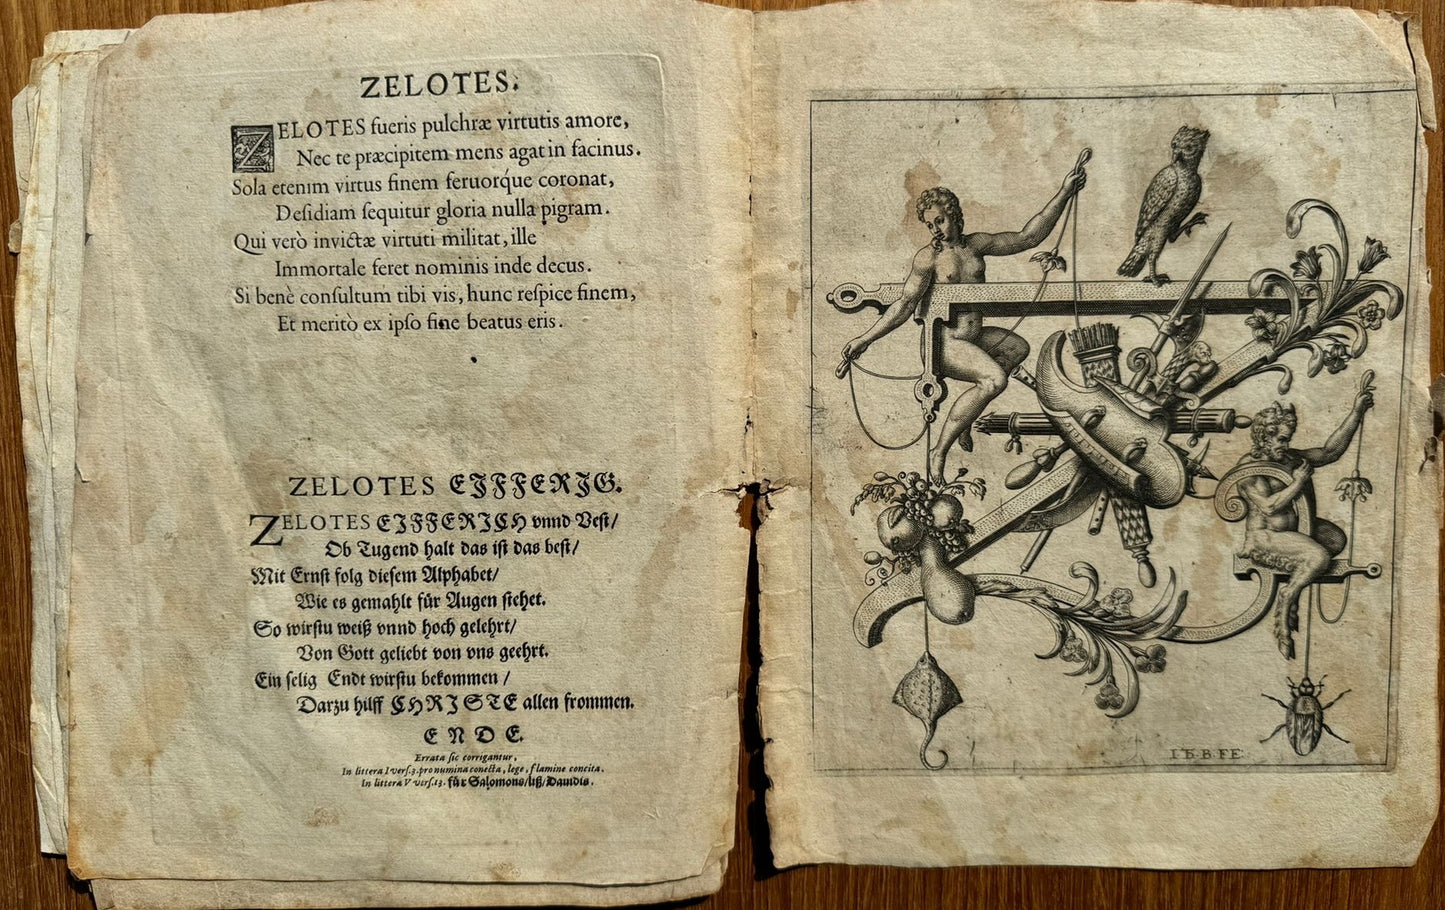 ZELOTES.
ZELOTES fueris pulchræ virtutis amore,
Nec te præcipitem mens agat in facinus.
Sola etenim virtus finem feruorq́ue coronat,
Deſidiam ſequitur gloria nulla pigram.
Qui verò invictæ virtuti militat, ille
Immortale feret nominis inde decus.
Si benè conſultum tibi vis, hunc reſpice finem,
Et meritò ex ipſo fine beatus eris.
ZELOTES EIFFERIG.
ZELOTES EIFFERICH vnnd Veſt/
Ob Tugend halt das iſt das beſt/
Mit Ernſt folg dieſem Alphabet/
Wie es gemahlt für Augen ſtehet.
So wirſtu weiß vnnd hoch gelehrt/
Von Gott geliebt von vns geehrt.
Ein ſelig Endt wirſtu bekommen /
Darzu hilff CHRISTE allen frommen.
ENDE.
Errata ſic corrigantur,
In littera I verſ.3. pro numina conecta, lege, flamine concita.
In littera V verſ.13. für Salomons/liß/Dauidis.
I·TB·B·FE·